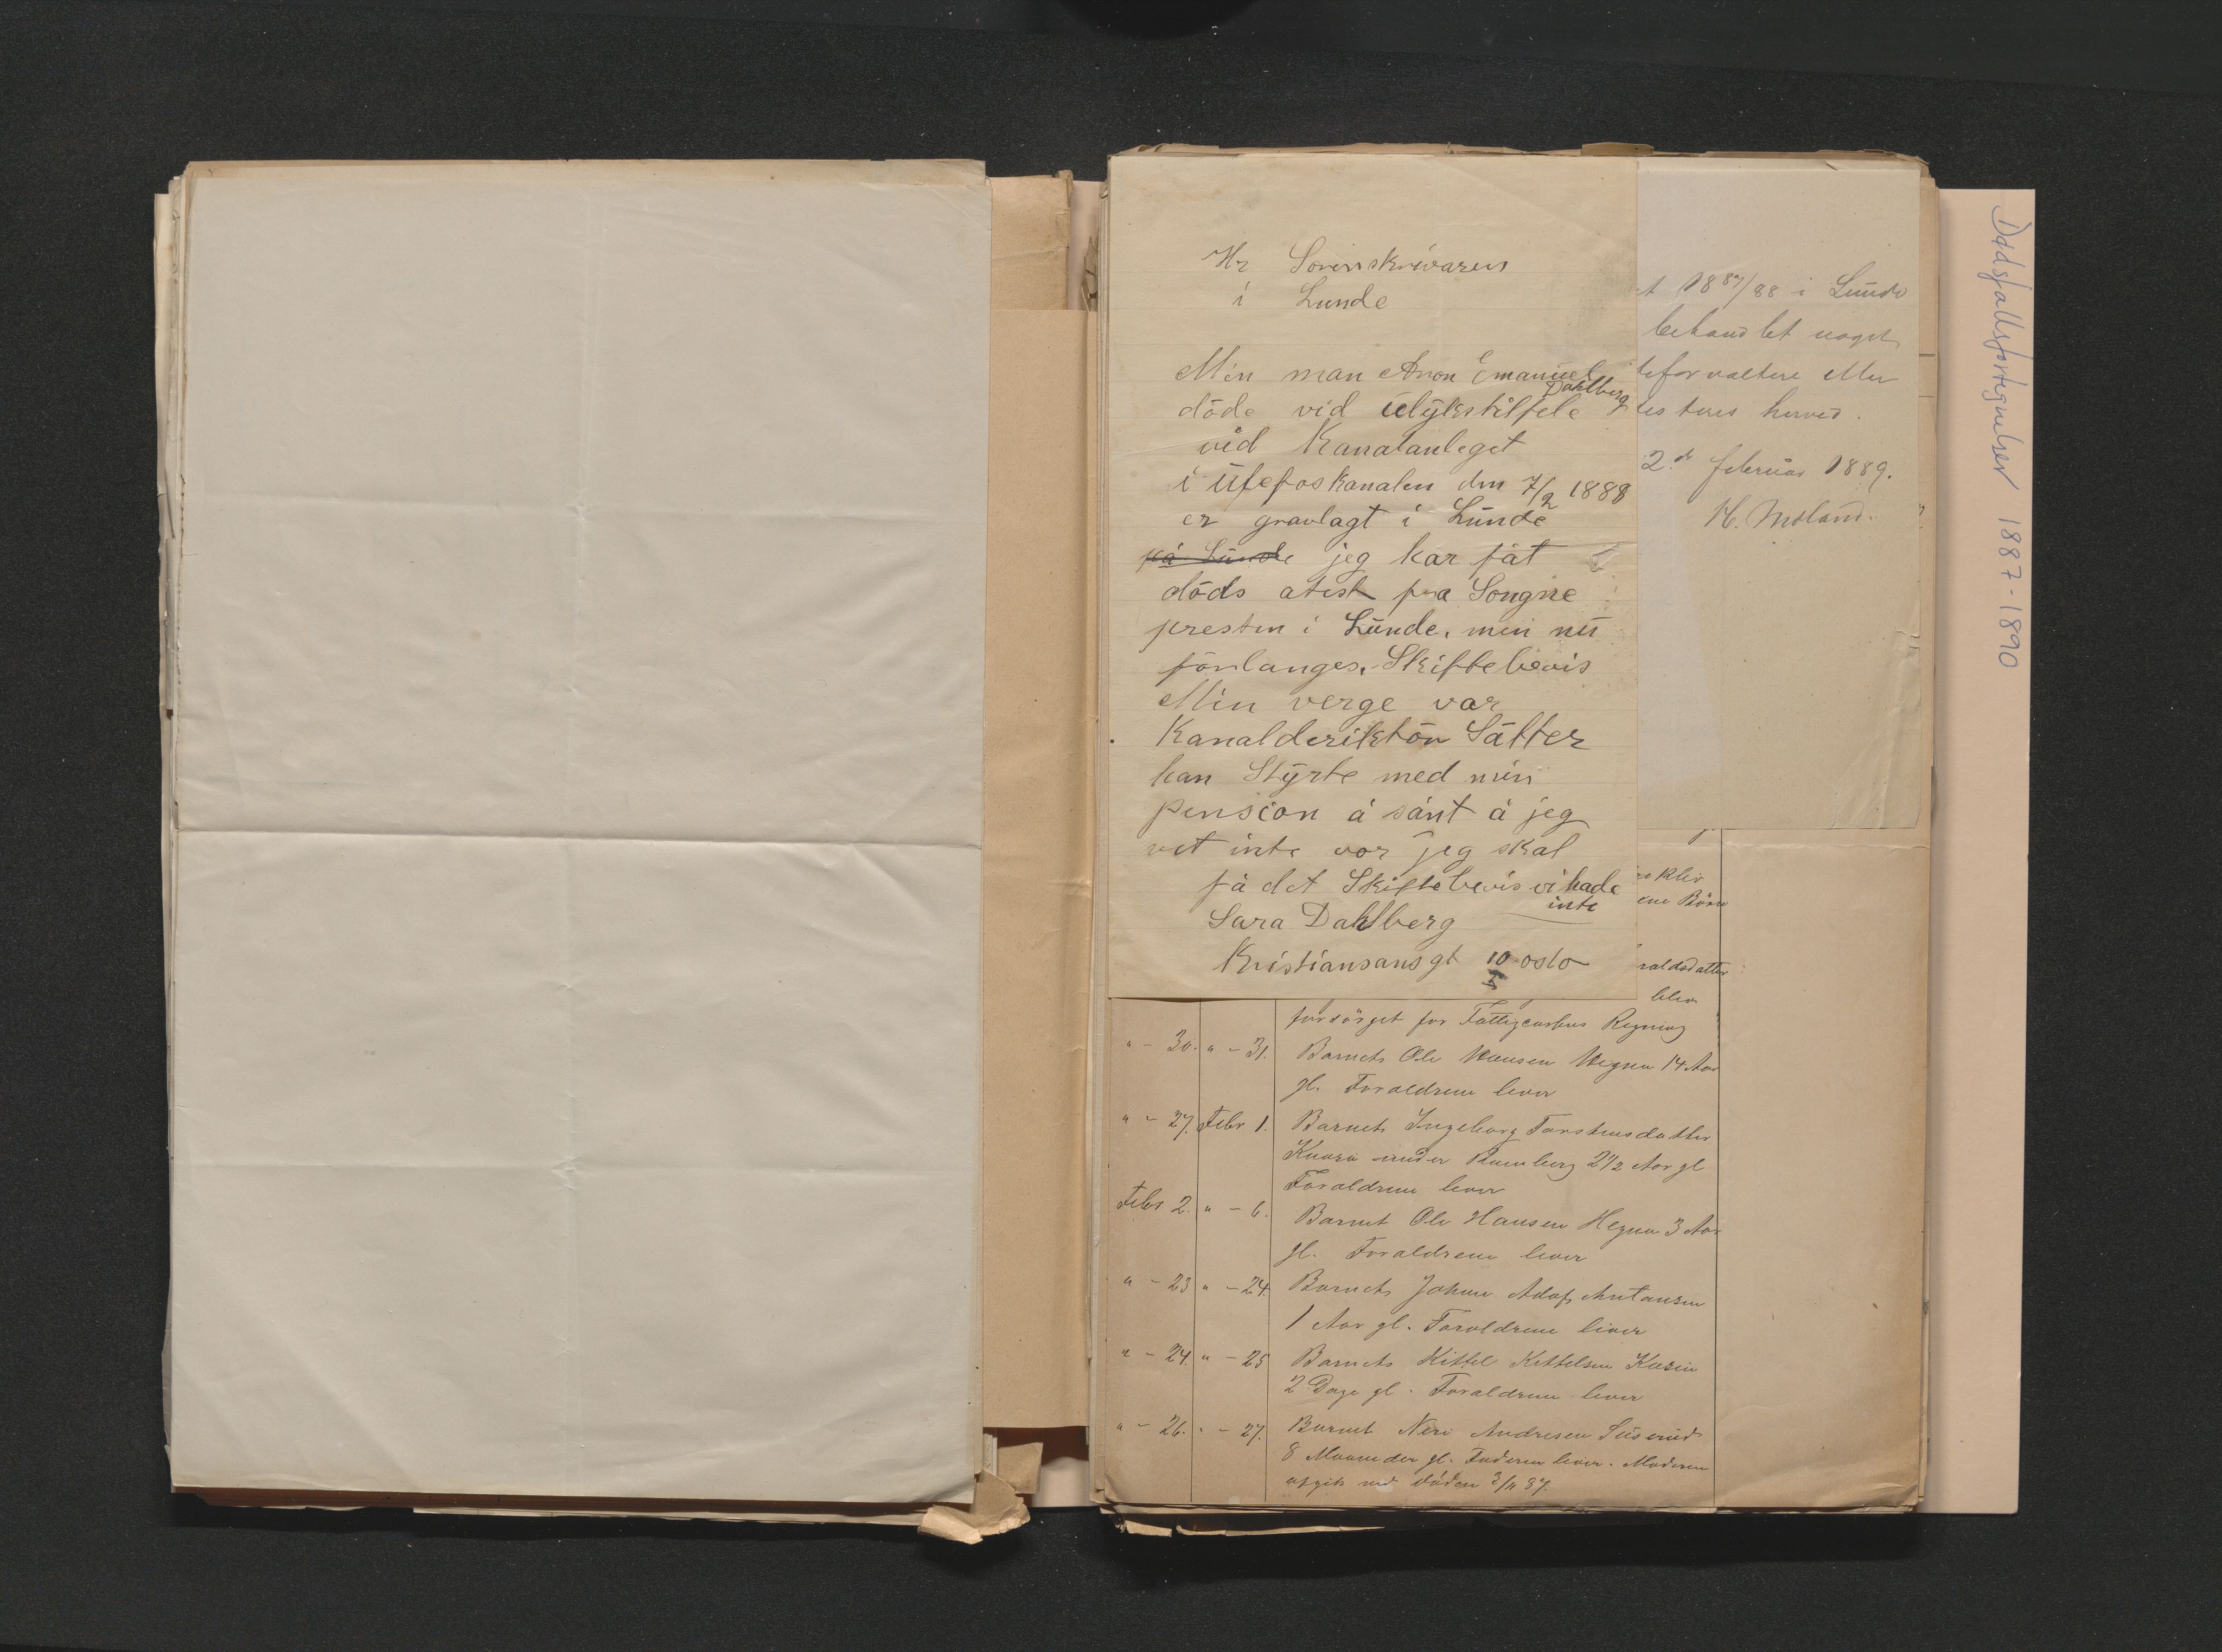 Hr Sorinskrivaren
i Lunde
Min man Aron Emanuel
Dahlberg
döde vid ulykstilfele
vid Kanalanleget
i Ulefoskanalen den 7/2 1888
er gravlagt i Lunde
på Lunde jeg har fåt
döds atest fra Songne
presten i Lunde. men nu
förlanges. Skiftebevis
Min verge var
Kanalderiktör Sätter
han Styrte med min
pension å sånt å jeg
vet inte vor jeg skal
få det Skiftebevis vi hade
inte
Sara Dahlberg
Kristiansansgt 10 Oslo
5
t 1887/88 i Lunde
behandlet noget
teforvaltere eller
testeres herved.
2. februar 1889.
H. Moland.
ene Börn
raldsdatter
blev
forsörget for Fattigcassens Regning
" - 30. " - 31. Barnet Ole Hansen Hegna 14 Aar
gl. Forældrene lever
" - 27. Febr 1. Barnet Ingeborg Torstensdatter
Kaasa under Romberg 2 1/2 Aar gl
Forældrene lever
Febr 2. " - 6. Barnet Ole Hansen Hegna 3 Aar
gl. Forældrene lever
" - 23 " - 24. Barnet Johan Adolf Antonsen
1 Aar gl. Forældrene lever
" - 24. " - 25 Barnet Kittel Kittelsen Kaasa
2 Dage gl. Forældrene lever
" - 26. " - 27. Barnet Neri Andresen
8 Maaneder gl. Faderen lever. Moderen
afgik ved döden 3/11 87.
Dødsfallsfortegnelser 1887-1890